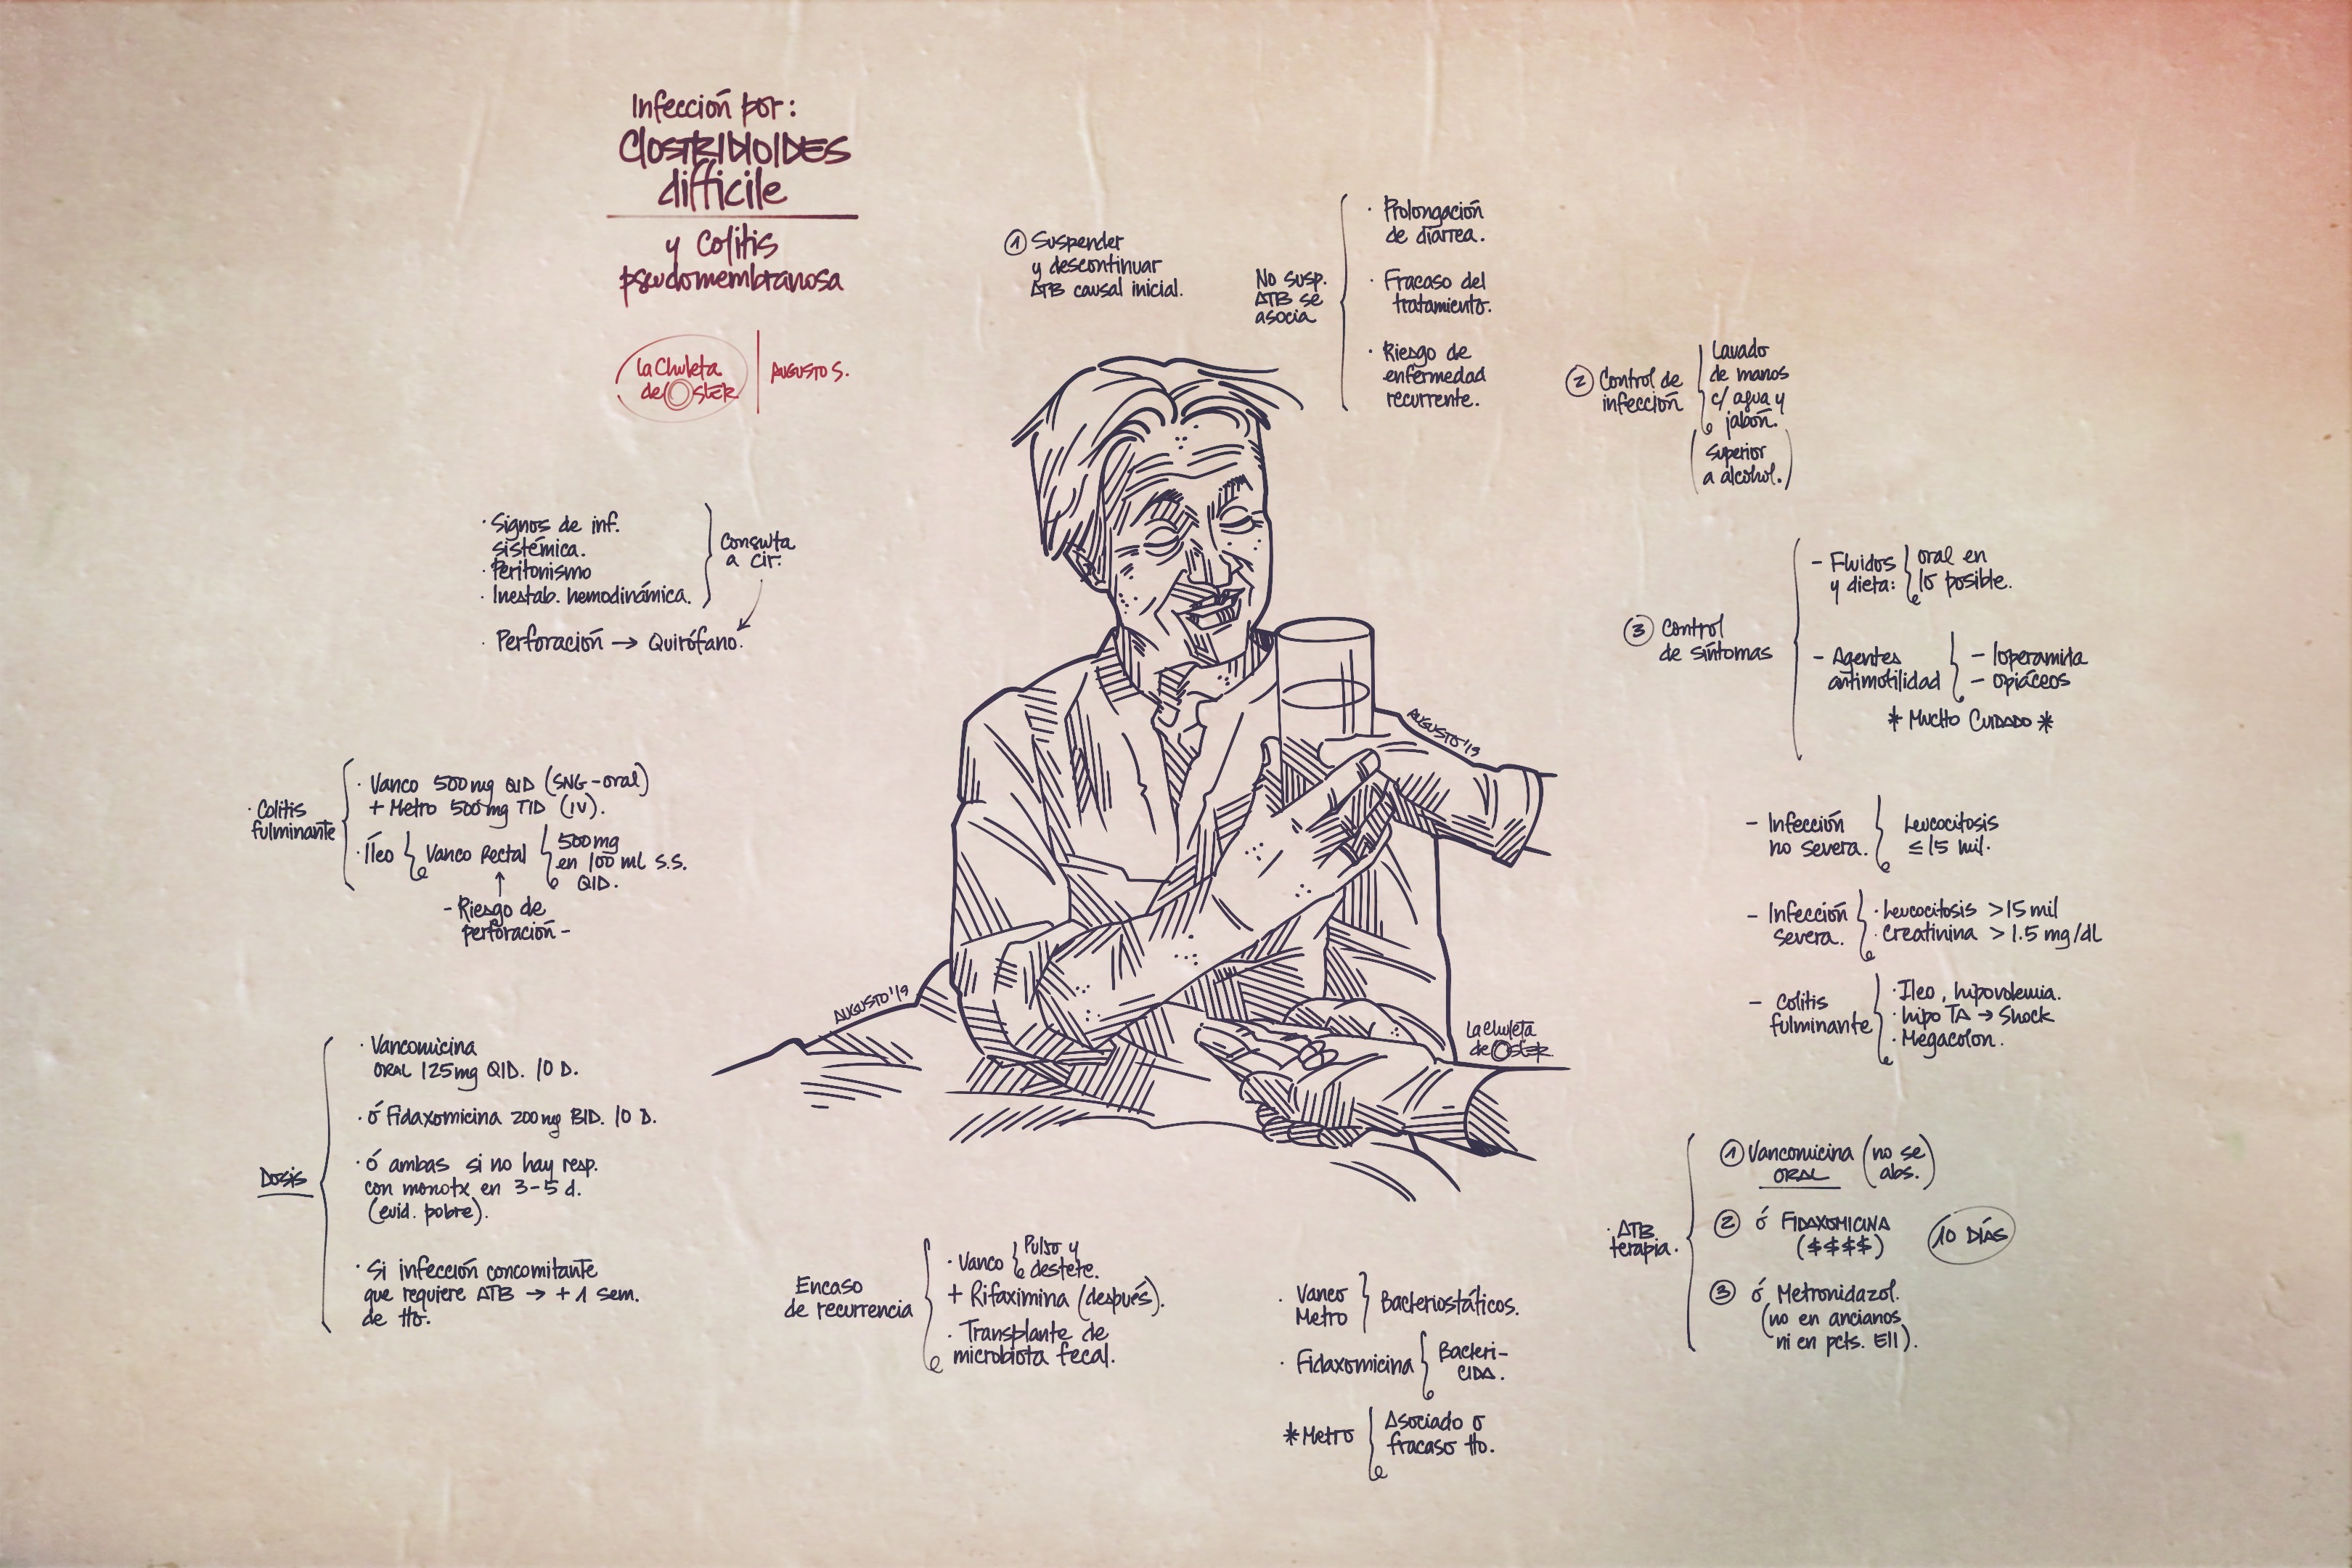 Infección por:
Clostridioides
difficile
y Colitis
pseudomembranosa
La Chuleta
de Oster
Augusto S.
① Suspender
y descontinuar
ATB causal inicial.
No susp.
ATB se
asocia
· Prolongación
de diarrea.
· Fracaso del
tratamiento.
· Riesgo de
enfermedad
recurrente.
② Control de
infección
Lavado
de manos
c/ agua y
jabón.
(Superior
a alcohol.)
③ Control
de síntomas
- Fluidos
y dieta:
oral en
lo posible.
- Agentes
antimotilidad
- loperamida
- opiáceos
* Mucho Cuidado *
- Infección
no severa.
Leucocitosis
≤ 15 mil.
- Infección
severa.
· Leucocitosis > 15 mil
· Creatinina > 1.5 mg/dL
- Colitis
fulminante
· Ileo, hipovolemia.
· hipo TA → Shock
· Megacolon.
· ATB
terapia.
① Vancomicina
ORAL
(no se
abs.)
② ó FIDAXOMICINA
($$$$)
10 DÍAS
③ ó Metronidazol.
(no en ancianos
ni en pcts. EII).
· Vanco
Metro
Bacteriostáticos.
· Fidaxomicina
Bacteri-
CIDA.
* Metro
Asociado a
fracaso tto.
En caso
de recurrencia
· Vanco
Pulso y
destete.
+ Rifaximina (después).
· Transplante de
microbiota fecal.
Dosis
· Vancomicina
ORAL 125mg QID. 10 D.
· ó Fidaxomicina 200mg BID. 10 D.
· ó ambas si no hay resp.
con monotx en 3-5 d.
(evid. pobre).
· Si infección concomitante
que requiere ATB → + 1 sem.
de tto.
· Colitis
fulminante
· Vanco 500mg QID (SNG-oral)
+ Metro 500mg TID (IV).
· Íleo
Vanco Rectal
500mg
en 100 ml S.S.
QID.
- Riesgo de
perforación -
· Signos de inf.
sistémica.
· Peritonismo
· Inestab. hemodinámica.
Consulta
a cir.
· Perforación → Quirófano.
AUGUSTO '19
AUGUSTO '19
La Chuleta
de Oster